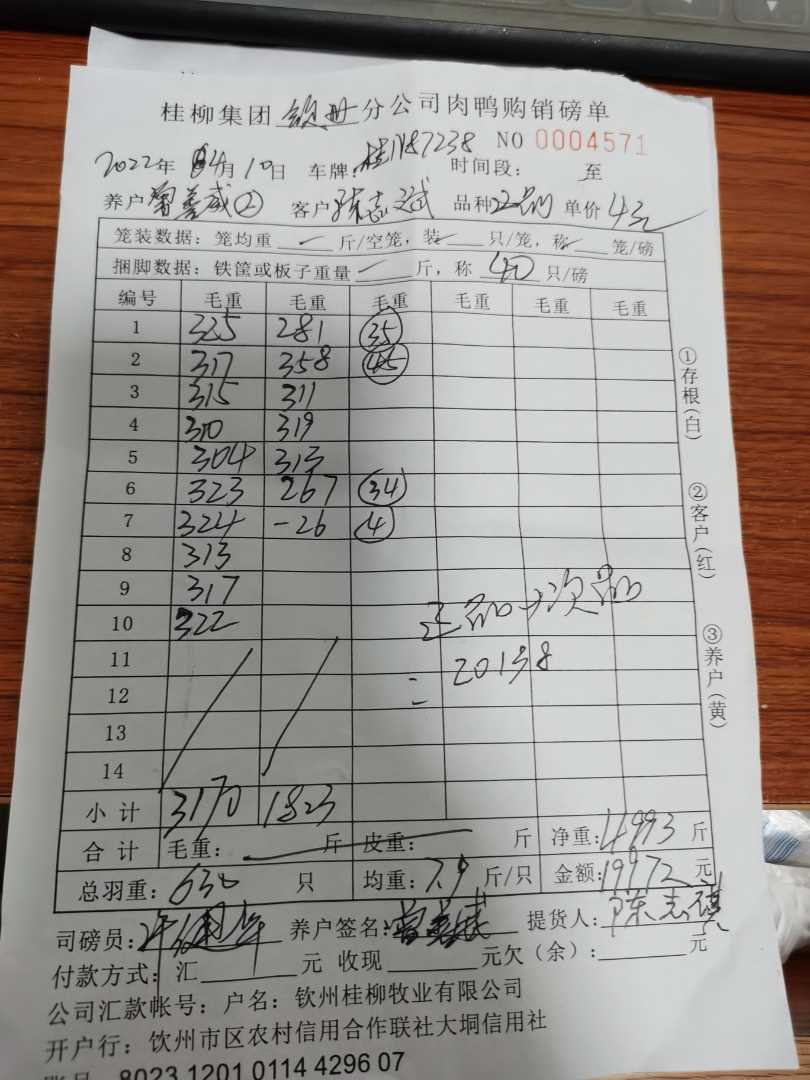 桂柳集团 钦州 分公司肉鸭购销磅单
2022年 4月10日 车牌: 桂N87238 时间段: 至 NO 0004571
养户 曾善威② 客户 品种 正品 单价 4元
笼装数据: 笼均重 / 斤/空笼, 装 / 只/笼, 称 / 笼/磅
捆脚数据: 铁筐或板子重量 / 斤, 称 40 只/磅
编号 毛重 毛重 毛重 毛重 毛重 毛重
1 325 281 35
2 317 358 45
3 315 311
4 310 319
5 304 313
6 323 267 34
7 324 -26 4
8 313
9 317
10 322
正品 次品
11
= 20138
12
13
14
小计 3170 1823
合计 毛重: 斤 皮重: 斤 净重: 4993 斤
总羽重: 630 只 均重: 7.9 斤/只 金额: 19972 元
司磅员: 养户签名: 曾善威 提货人: 陈志祺
付款方式: 汇 元 收现 元欠(余): 元
公司汇款帐号: 户名: 钦州桂柳牧业有限公司
开户行: 钦州市区农村信用合作联社大垌信用社
账号 8023 1201 0114 4296 07
①存根(白)
②客户(红)
③养户(黄)